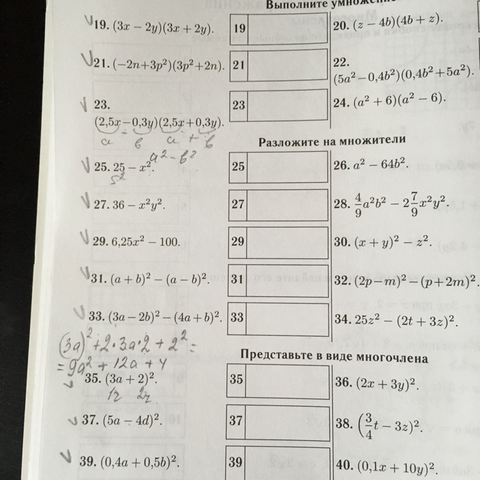 Выполните умножение
19. (3x − 2y)(3x + 2y). 19 20. (z − 4b)(4b + z).
21. (−2n+3p²)(3p²+2n). 21 22. (5a² − 0,4b²)(0,4b² + 5a²).
23. (2,5x−0,3y)(2,5x+0,3y). 23 24. (a² + 6)(a² − 6).
a b a + b
a² − b²
Разложите на множители
25. 25 − x². 25 26. a² − 64b².
5²
27. 36 − x²y². 27 28. 4/9 a²b² − 2 7/9 x²y².
29. 6,25x² − 100. 29 30. (x + y)² − z².
31. (a + b)² − (a − b)². 31 32. (2p − m)² − (p + 2m)².
33. (3a − 2b)² − (4a + b)². 33 34. 25z² − (2t + 3z)².
(3a)² + 2·3a·2 + 2² =
= 9a² + 12a + 4
Представьте в виде многочлена
35. (3a + 2)². 35 36. (2x + 3y)².
37. (5a − 4d)². 37 38. (3/4 t − 3z)².
39. (0,4a + 0,5b)². 39 40. (0,1x + 10y)².